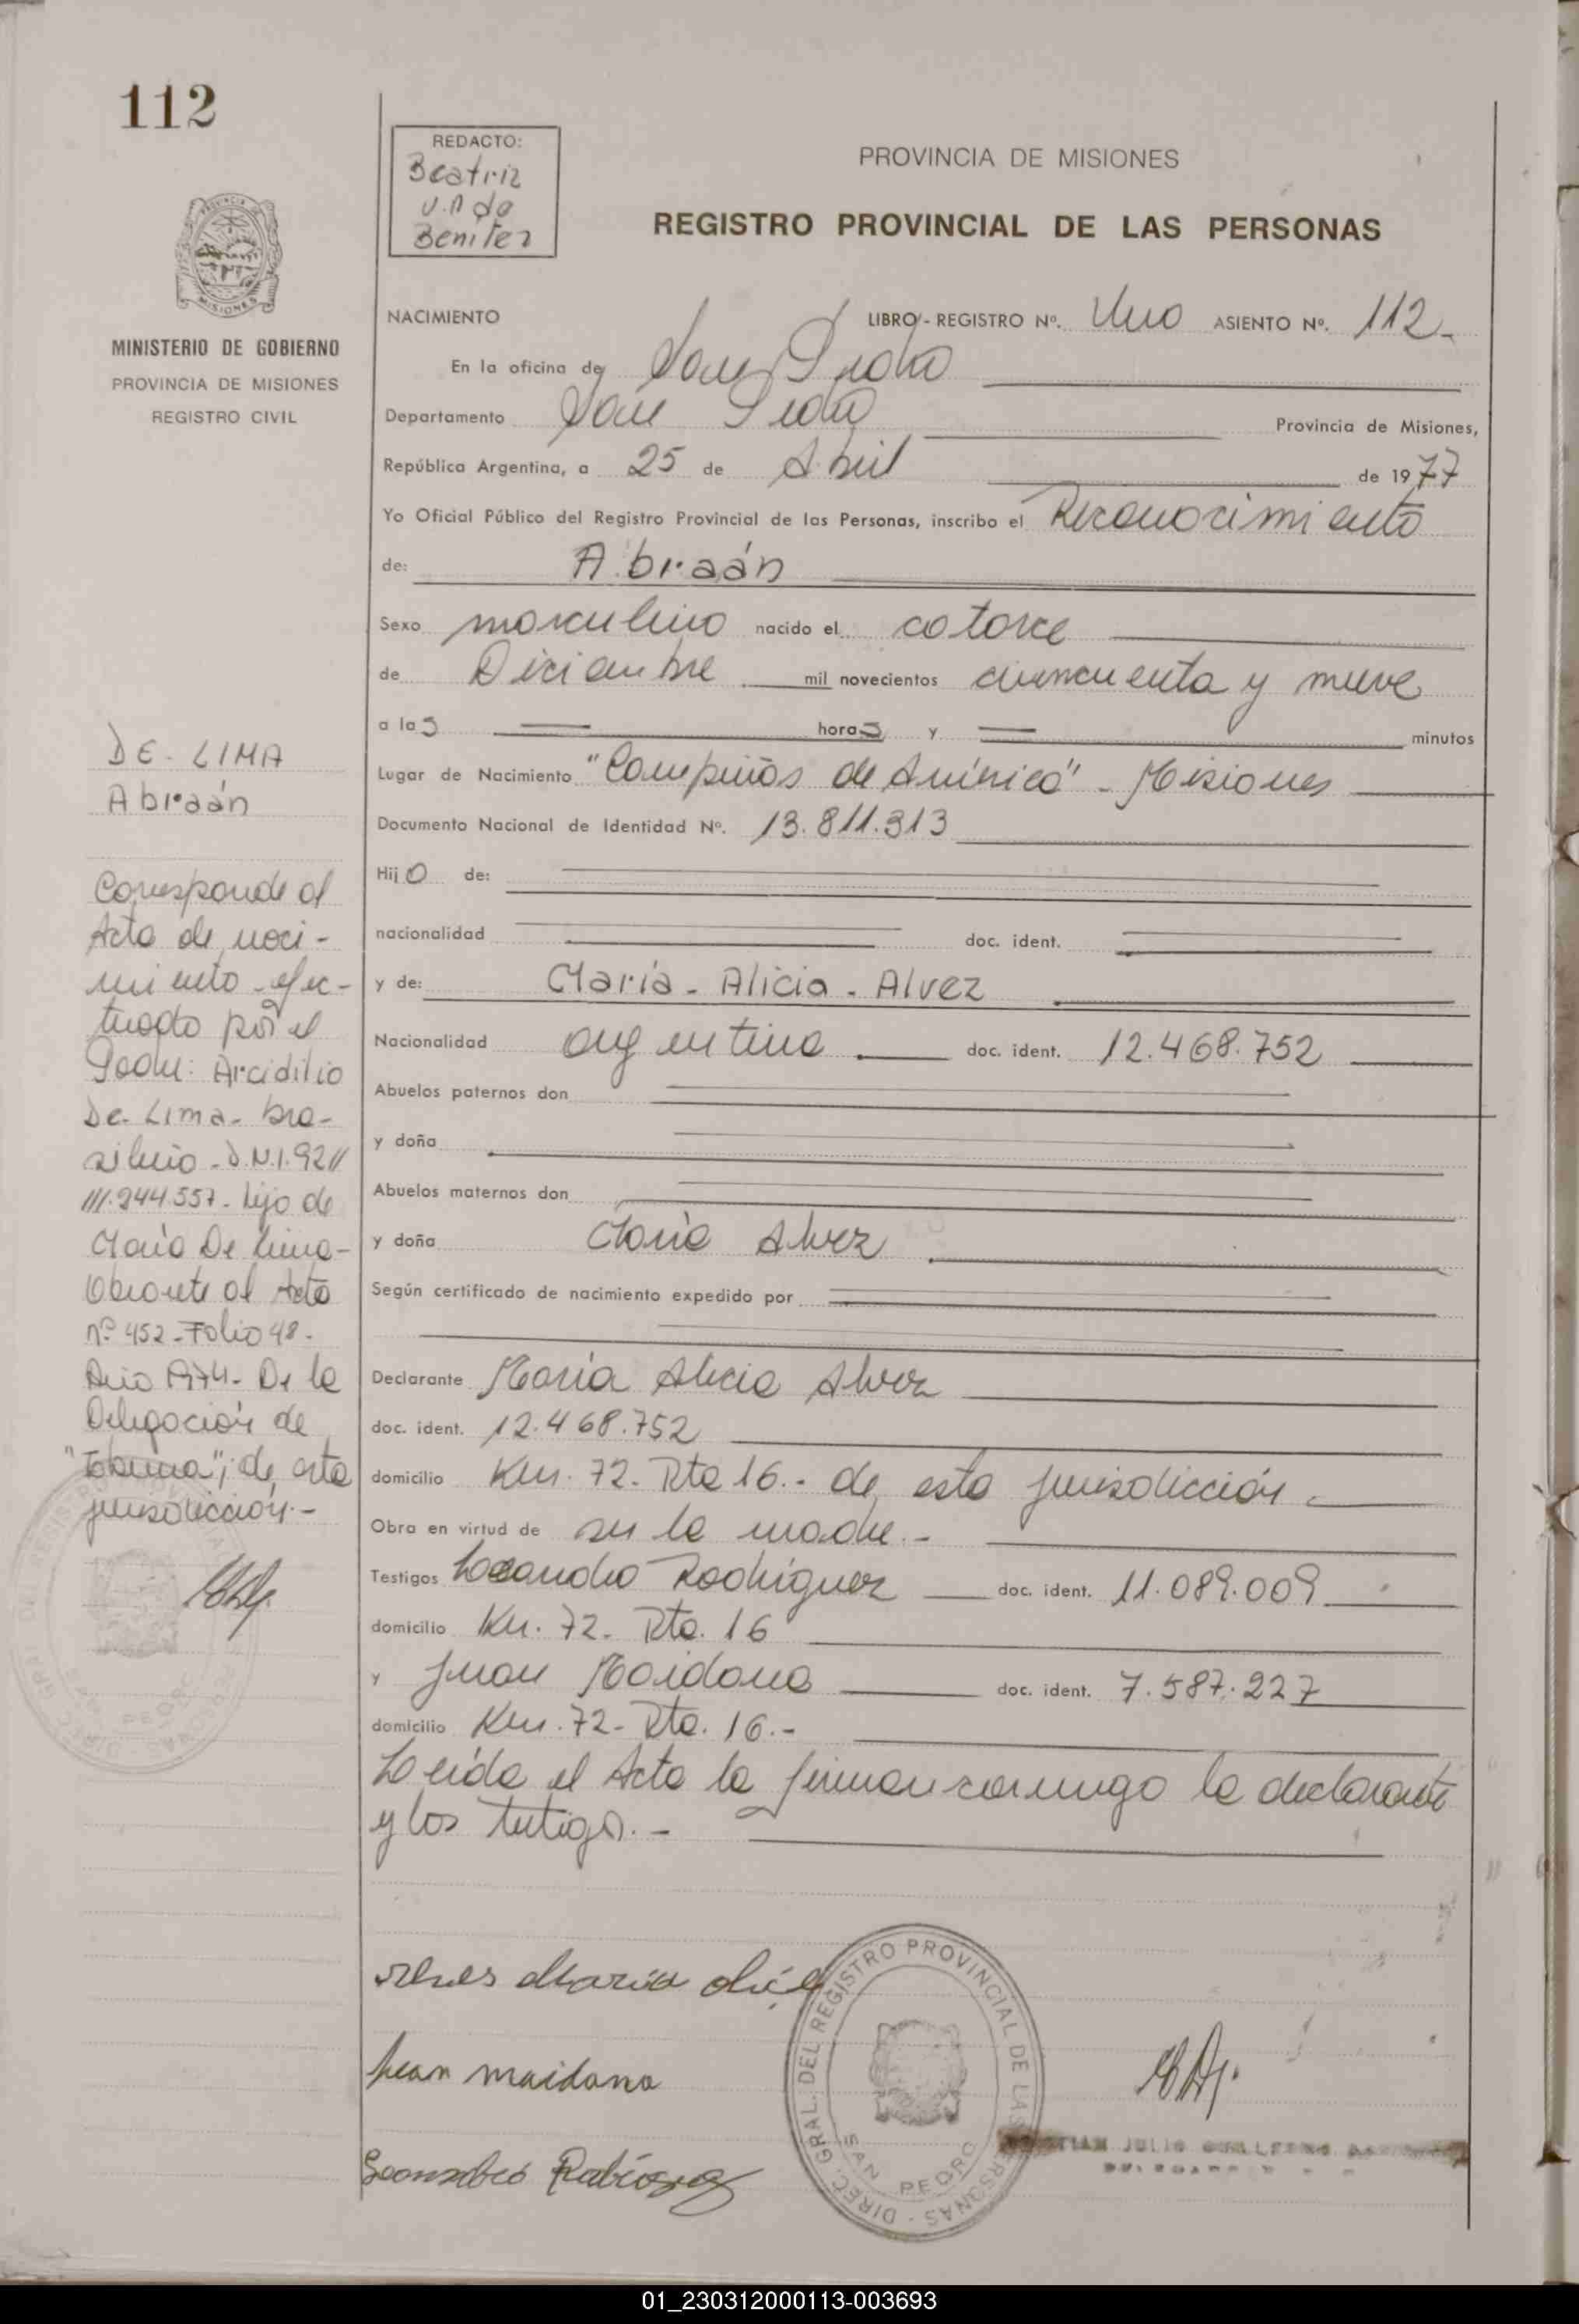 112
REDACTO:
Beatriz
v.n de
Benitez
MINISTERIO DE GOBIERNO
PROVINCIA DE MISIONES
REGISTRO CIVIL
DE - LIMA
Abraán
Corresponde al
Acta de naci-
miento - efec-
tuado por el
Padre: Arcidilio
De - Lima - bra-
silero - D.N.I. 92//
///.244.557 - hijo de
María De Lima -
Obrante al Acta
nº 452 - Folio 48 -
Año 1974 - De la
Delegación de
"Tobuna"; de esta
jurisdicción. -
PROVINCIA DE MISIONES
REGISTRO PROVINCIAL DE LAS PERSONAS
NACIMIENTO LIBRO - REGISTRO Nº. Uno ASIENTO Nº. 112 -
En la oficina de San Pedro
Departamento San Pedro Provincia de Misiones,
República Argentina, a 25 de Abril de 1977
Yo Oficial Público del Registro Provincial de las Personas, inscribo el Reconocimiento
de: Abraán
Sexo masculino nacido el catorce
de Diciembre mil novecientos cincuenta y nueve
a las — horas y — minutos
Lugar de Nacimiento "Campiñas de Américo" - Misiones
Documento Nacional de Identidad Nº. 13.811.313
Hijo de:
nacionalidad doc. ident.
y de: María - Alicia - Alvez
Nacionalidad argentina doc. ident. 12.468.752
Abuelos paternos don
y doña
Abuelos maternos don
y doña María Alvez
Según certificado de nacimiento expedido por
Declarante María Alicia Alvez
doc. ident. 12.468.752
domicilio Km. 72 - Rta 16. - de esta jurisdicción -
Obra en virtud de ser la madre. -
Testigos Leandro Rodríguez doc. ident. 11.089.009
domicilio Km. 72 - Rta. 16
y Juan Maidana doc. ident. 7.587.227
domicilio Km. 72 - Rta. 16. -
Leída el Acta la firman conmigo la declarante
y los testigos. -
María
Juan maidana
DIREC. GRAL. DEL REGISTRO PROVINCIAL DE LAS PERSONAS
SAN PEDRO
JULIO GUILLERMO
01_230312000113-003693